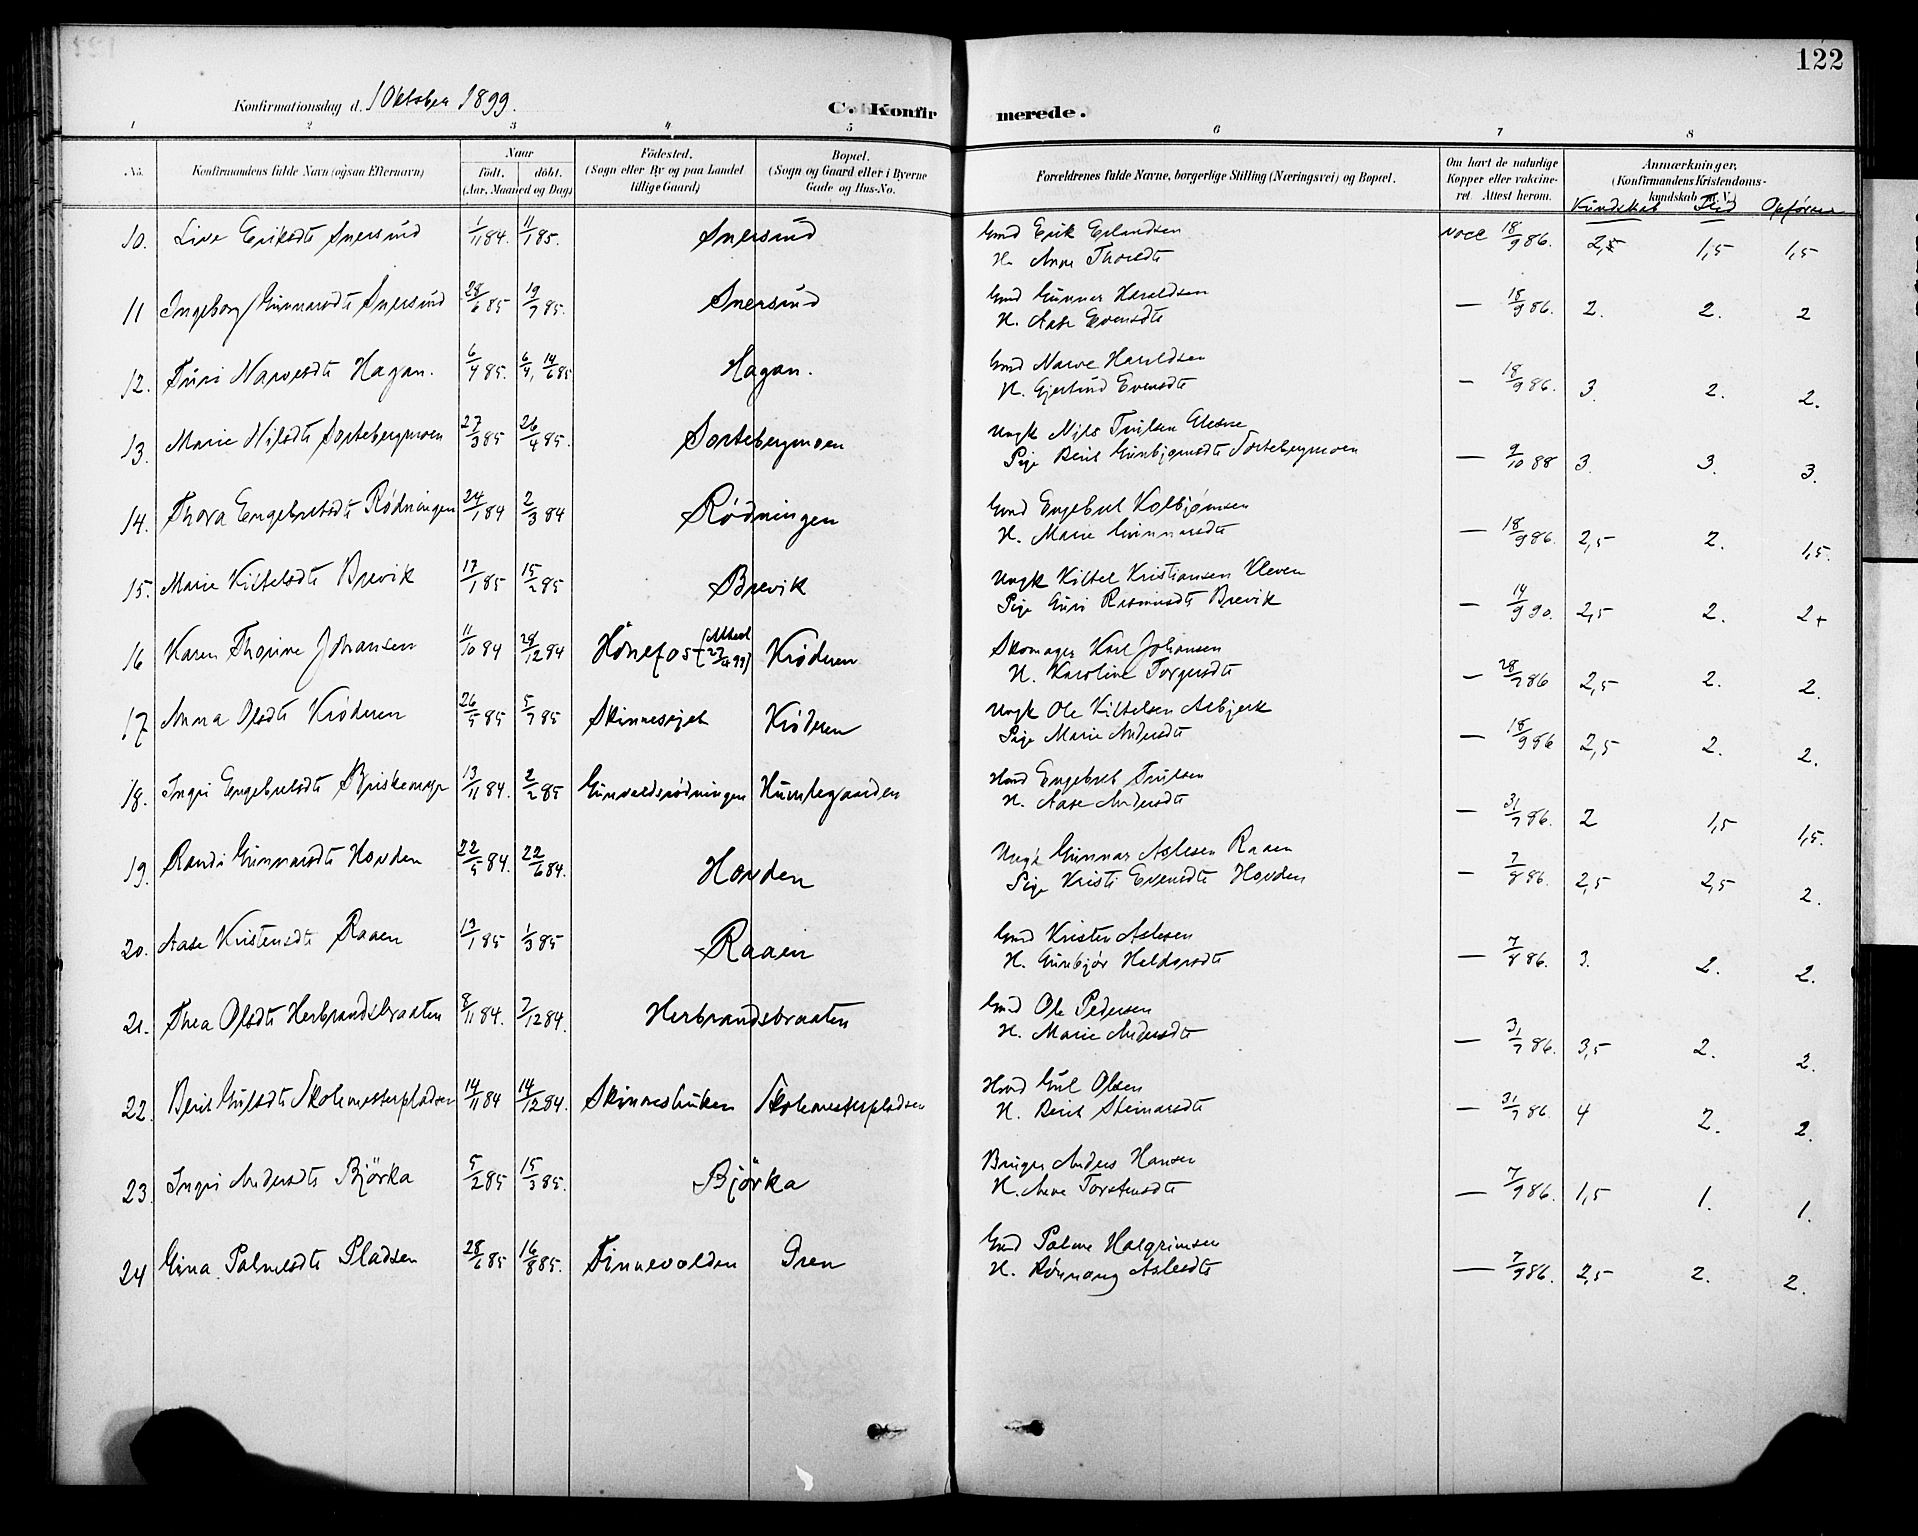 122
Konfirmationsdag d. 1 Oktober 1899.
C. Konfirmerede.
1 2 3 4 5 6 7 8
No. Konfirmandens fulde Navn (ogsaa Efternavn) Naar Født. døbt. (Aar, Maaned og Dag) Fødested. (Sogn eller By og paa Landet tillige Gaard) Bopæl. (Sogn og Gaard eller i Byerne Gade og Hus-No. Forældrenes fulde Navne, borgerlige Stilling (Næringsvei) og Bopæl. Om havt de naturlige Kopper eller vaksineret. Attest herom. Anmærkninger. (Konfirmandens Kristendomskundskab m. V.)
Kundskab Flid Opførsel
10. Live Eriksdtr Snersrud 1/11 84. 11/1 85. Snersrud Gmd Erik Erlandsen vacc 18/9 86. 2,5 1,5 1,5
H. Anne Thorsdtr
11 Ingeborg Gunnarsdtr Snersrud 28/6 85 19/7 85. Snersrud Gmd Gunnar Haraldsen — 18/9 86. 2. 2. 2
H. Aase Evensdtr
12. Turi Narvesdtr Hagan. 6/4 85. 6/4, 14/6 85 Hagan. Gmd Narve Haraldsen — 18/9 86. 3. 2. 2.
H. Gjertrud Evensdtr
13. Marie Nilsdtr Sortebergmoen 27/3 85 26/4 85. Sortebergmoen Ungk Nils Trulsen — 9/10 88 3. 3. 3.
Pige Berit Gunbjørnsdtr Sortebergmoen
14. Thora Engebretsdtr Rødningen 24/1 84 2/3 84 Rødningen Gmd Engebret Kolbjørnsen — 18/9 86. 2,5 2. 1,5.
H. Marie Gunnarsdtr
15. Marie Kittelsdtr Brevik 17/1 85 15/2 85 Brevik Ungk Kittel Kristiansen Kleven — 14/9 90. 2,5 2. 2+
Pige Guri Rasmusdtr Brevik
16 Karen Thorine Johansen 11/10 84 28/12 84 Hönefos Krøderen Skomager Karl Johansen — 28/7 86 2,5 2. 2.
H. Karoline Torgersdtr
17 Anna Olsdtr Krøderen 26/5 85 5/7 85 Skinnesejet Krøderen Ungk Ole Kittelsen Asbjerk — 18/9 86 2,5 2. 2.
Pige Marie Andersdtr
18. Ingri Engebretsdtr 13/11 84. 2/2 85 Gunvaldsrødningen Humlegaarden Hmd Engebret Trulsen — 31/7 86. 2 1,5 1,5.
H. Aase Andersdtr
19. Randi Gunnarsdtr Hovden 22/5 84. 22/6 84. Hovden Ungk Gunnar Aslesen Raaen — 7/8 86. 2,5 2,5 2.
Pige Kristi Evensdtr Hovden
20. Aase Kristensdtr Raaen 13/1 85 1/3 85 Raaen Gmd Kristen Aslesen — 7/8 86. 3. 2. 2.
H. Gunbjør
21. Thea Olsdtr Herbrandsbraaten 8/11 84. 7/12 84. Herbrandsbraaten Gmd Ole Pedersen — 31/7 86. 3,5 2. 2.
H. Marie Andersdtr
22. Berit Gulsdtr Skolemesterpladsen 14/11 84 14/12 84. Skinneshuken Skolemesterpladsen Hmd Gul Olsen — 31/7 86. 4 2. 2.
H. Berit Steinarsdtr
23. Ingri Andersdtr Björka 5/2 85 15/3 85. Björka Bruger Anders Hansen — 7/9 86. 1,5 1. 1.
H. Anne Torstensdtr
24 Gina Palmesdtr Pladsen 28/6 85 16/8 85. Finnevolden Gren Gmd Palme Halgrimsen — 7/9 86. 2,5 2. 2.
H. Rønnaug Aslesdtr